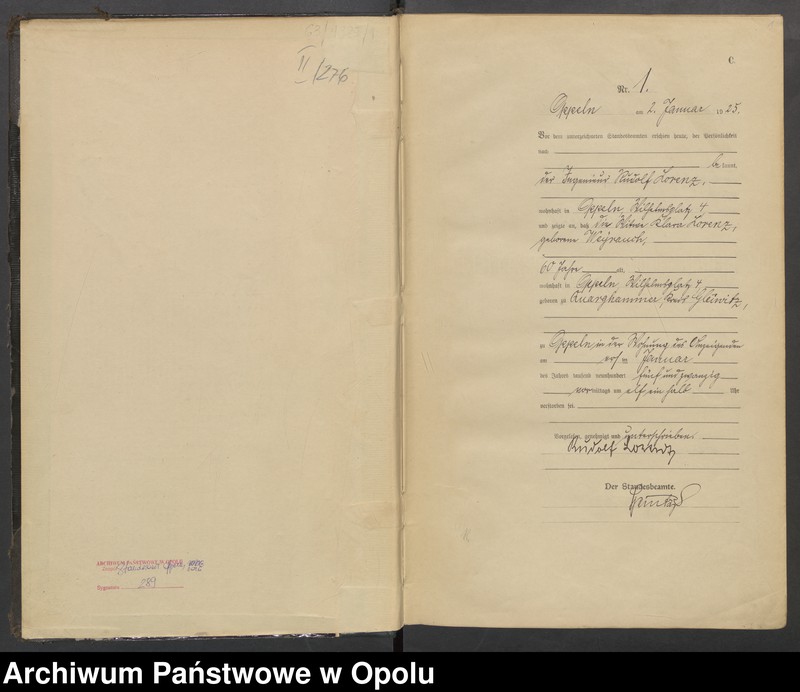 II/276
ARCHIWUM PAŃSTWOWE W OPOLU
Standesamt Oppeln
Sygnatura 289
C.
Nr. 1.
Oppeln am 2. Januar 1925.
Vor dem unterzeichneten Standesbeamten erschien heute, der Persönlichkeit
nach
be kannt,
der Ingenieur Rudolf Lorenz,
wohnhaft in Oppeln, Wilhelmsplatz 4
und zeigte an, daß die Witwe Klara Lorenz,
geborene Weyrauch,
60 Jahre alt,
wohnhaft in Oppeln, Wilhelmsplatz 4,
geboren zu Quarghammer, Kreis Gleiwitz,
zu Oppeln in der Wohnung des Anzeigenden
am ersten Januar
des Jahres tausend neunhundert fünfundzwanzig
vor mittags um elf ein halb Uhr
verstorben sei.
Vorgelesen, genehmigt und unterschrieben.
Rudolf Lorenz
Der Standesbeamte.
Archiwum Państwowe w Opolu